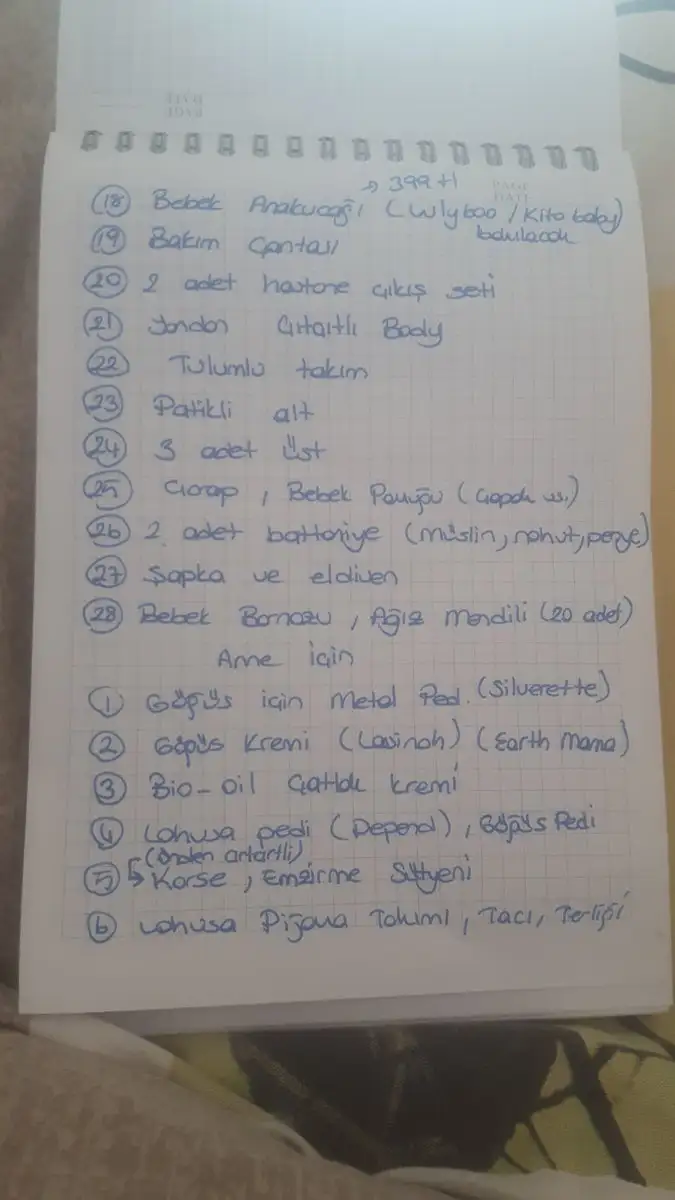 → 399 tl
PAGE
DATE
18 Bebek Anakucağı (Wlyboo / Kito baby)
bakılacak
19 Bakım Çantası
20 2 adet hastane çıkış seti
21 Yandan Çıtçıtlı Body
22 Tulumlu takım
23 Patikli alt
24 3 adet Üst
25 Çorap, Bebek Pamuğu (Çapak vs.)
26 2 adet battaniye (müslin, nohut, penye)
27 Şapka ve eldiven
28 Bebek Bornozu, Ağız Mendili (20 adet)
Anne için
1 Göğüs için Metal Ped. (Silverette)
2 Göğüs Kremi (Lasinoh) (Earth Mama)
3 Bio-oil Çatlak kremi
4 Lohusa pedi (Depend), Göğüs Pedi
(Önden çıtçıtlı)
5 Korse, Emzirme Sütyeni
6 Lohusa Pijama Takımı, Tacı, Terliği